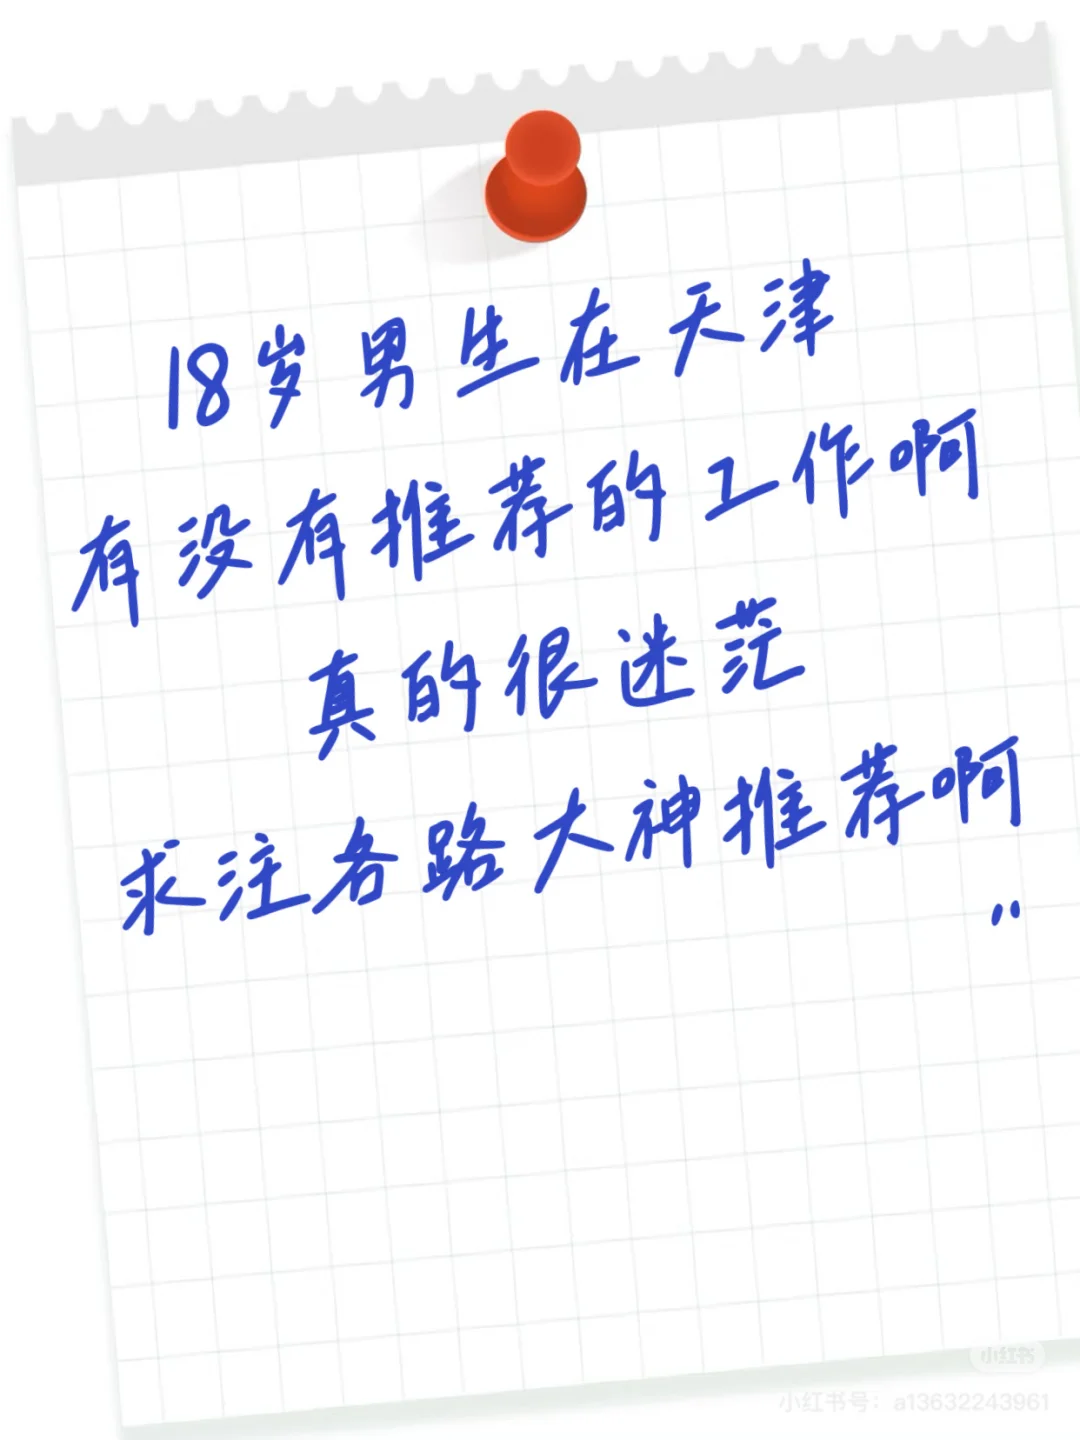 18岁男生在天津
有没有推荐的工作啊
真的很迷茫
求注各路大神推荐啊
,,
小红书
小红书号：a13632243961